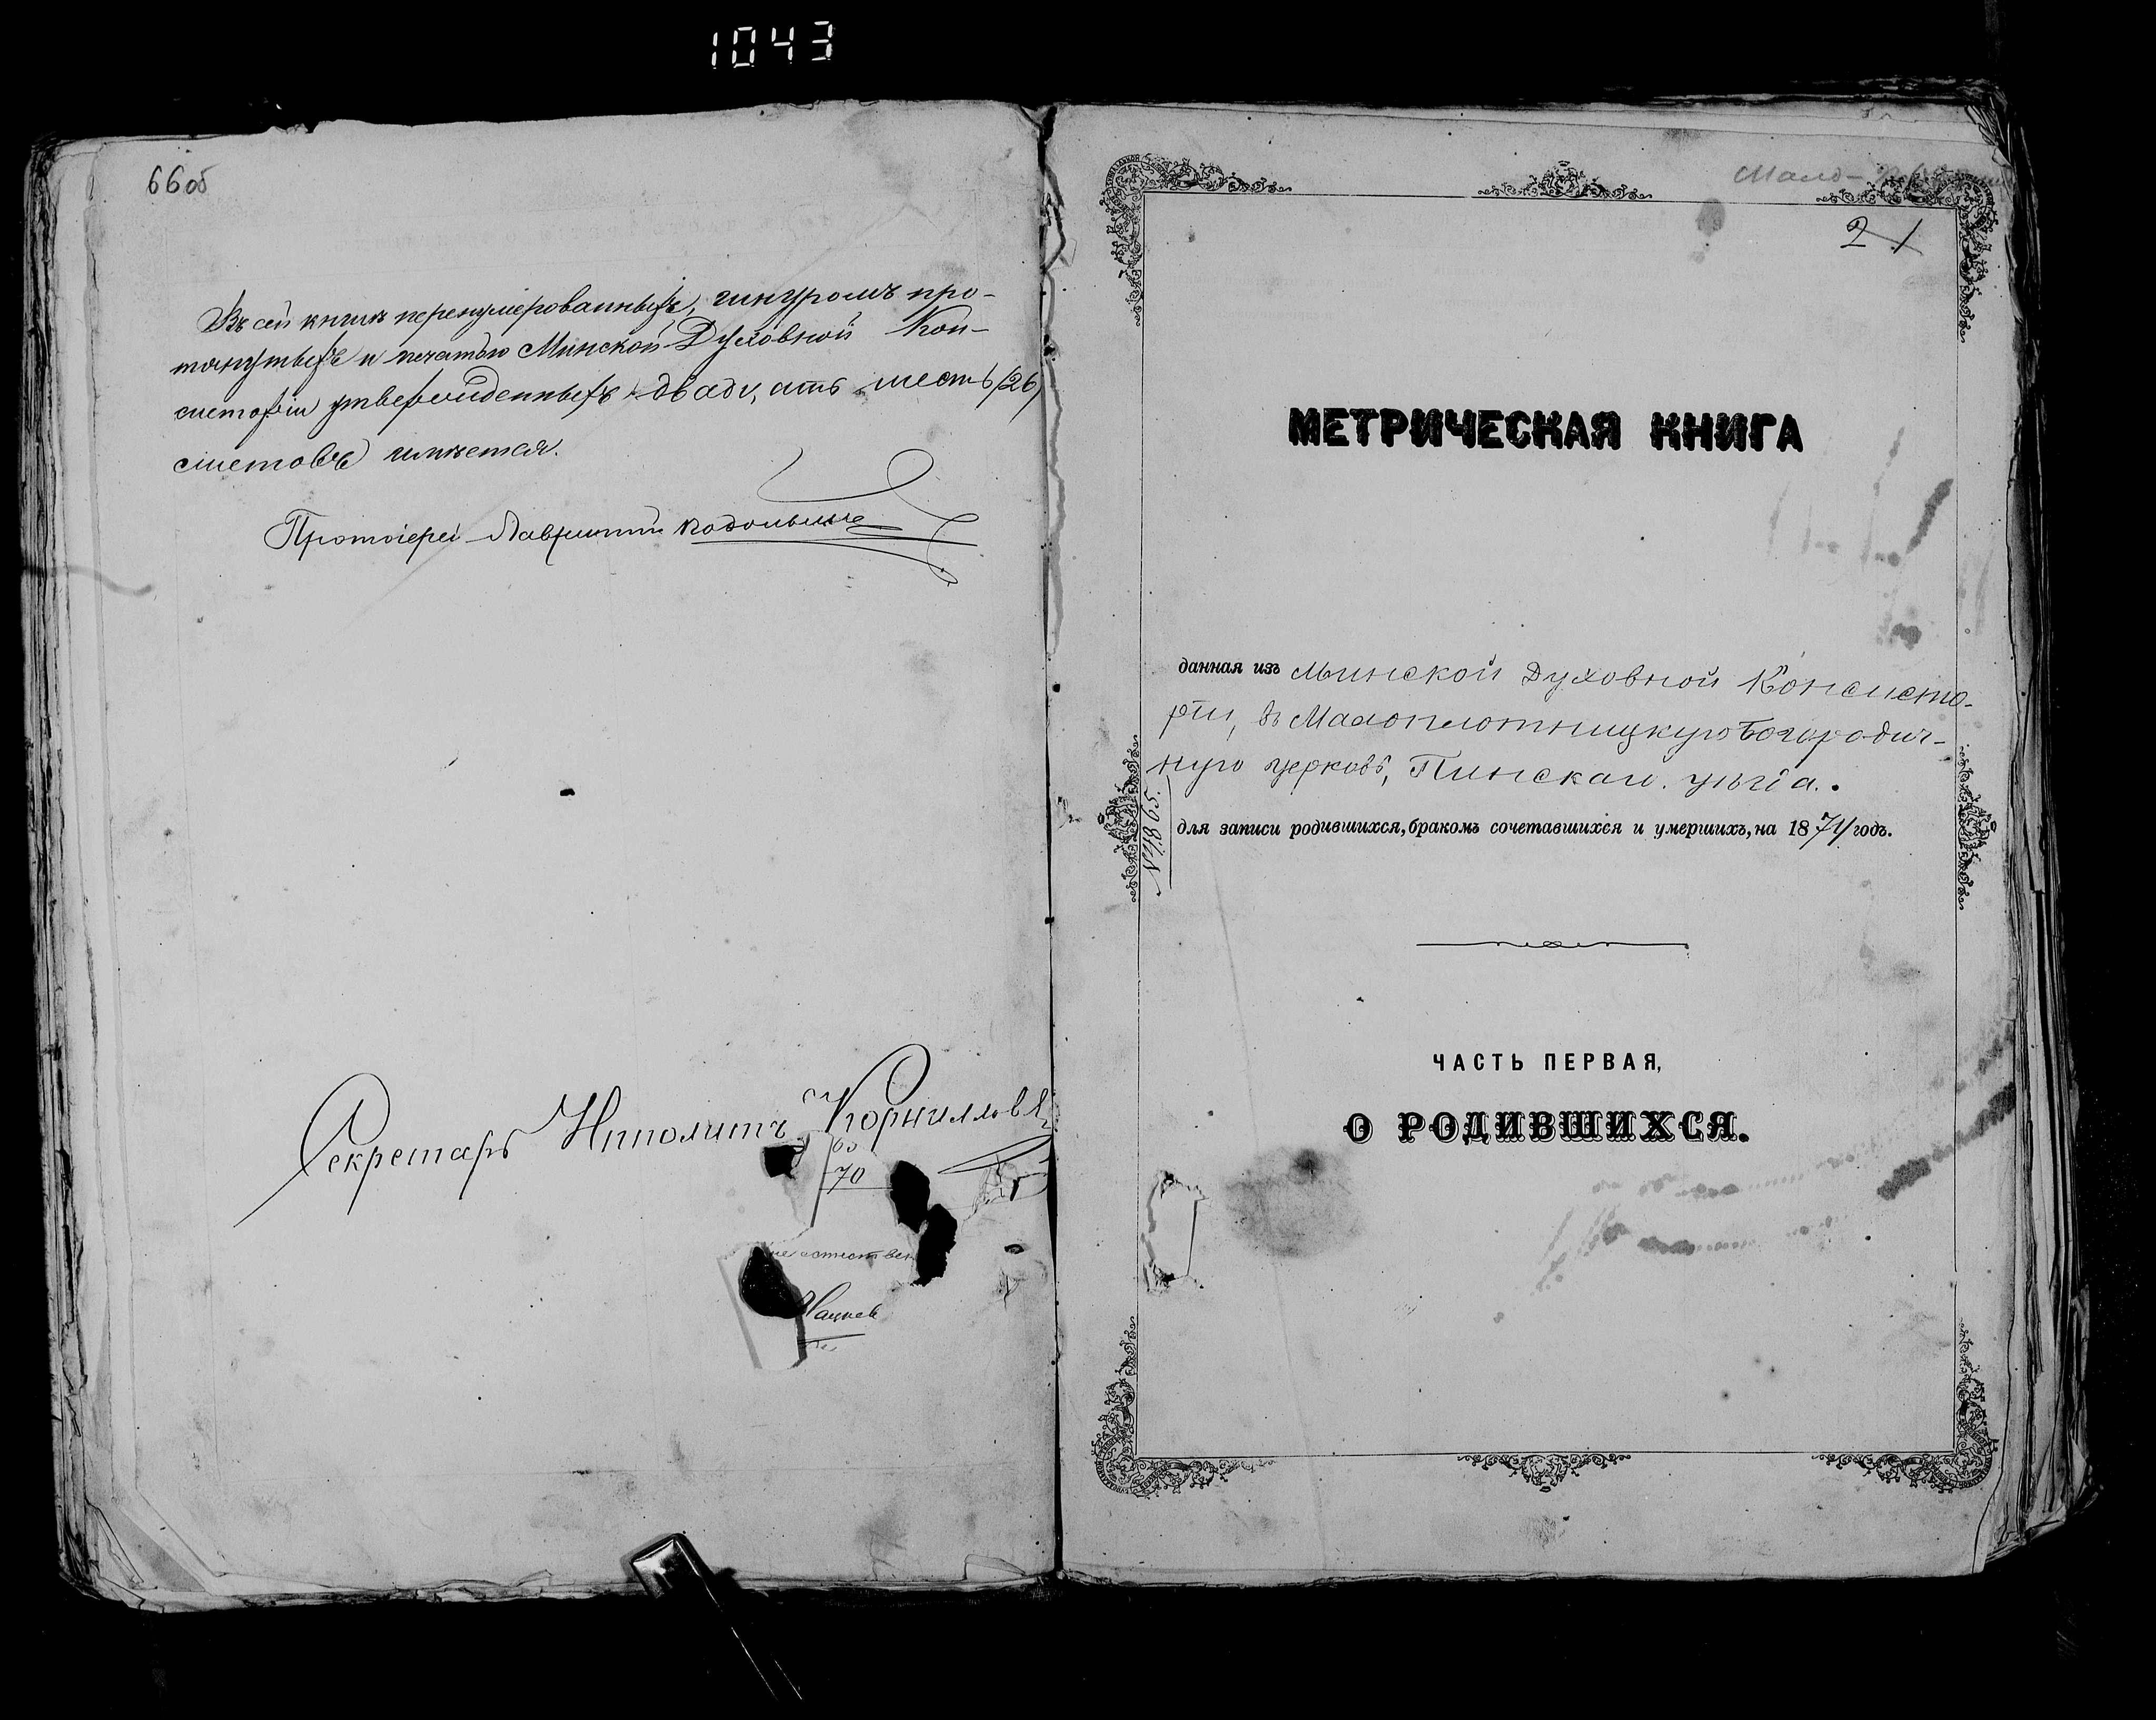 1043
66об
Въ сей книгѣ перенумерованныхъ, шнуромъ про-
тянутыхъ и печатью Минской Духовной Кон-
систоріи утвержденныхъ двадцать шесть (26)
листовъ имѣется.
Протоіерей Лаврентій
Секретарь Ипполитъ Корниловъ
70
Мало-
21
МЕТРИЧЕСКАЯ КНИГА
данная изъ Минской Духовной Консисто-
ріи, въ Малоплотницкую Богородич-
ную церковь, Пинскаго уѣзда.
№ 4865.
для записи родившихся, бракомъ сочетавшихся и умершихъ, на 1874 годъ.
ЧАСТЬ ПЕРВАЯ,
О РОДИВШИХСЯ.